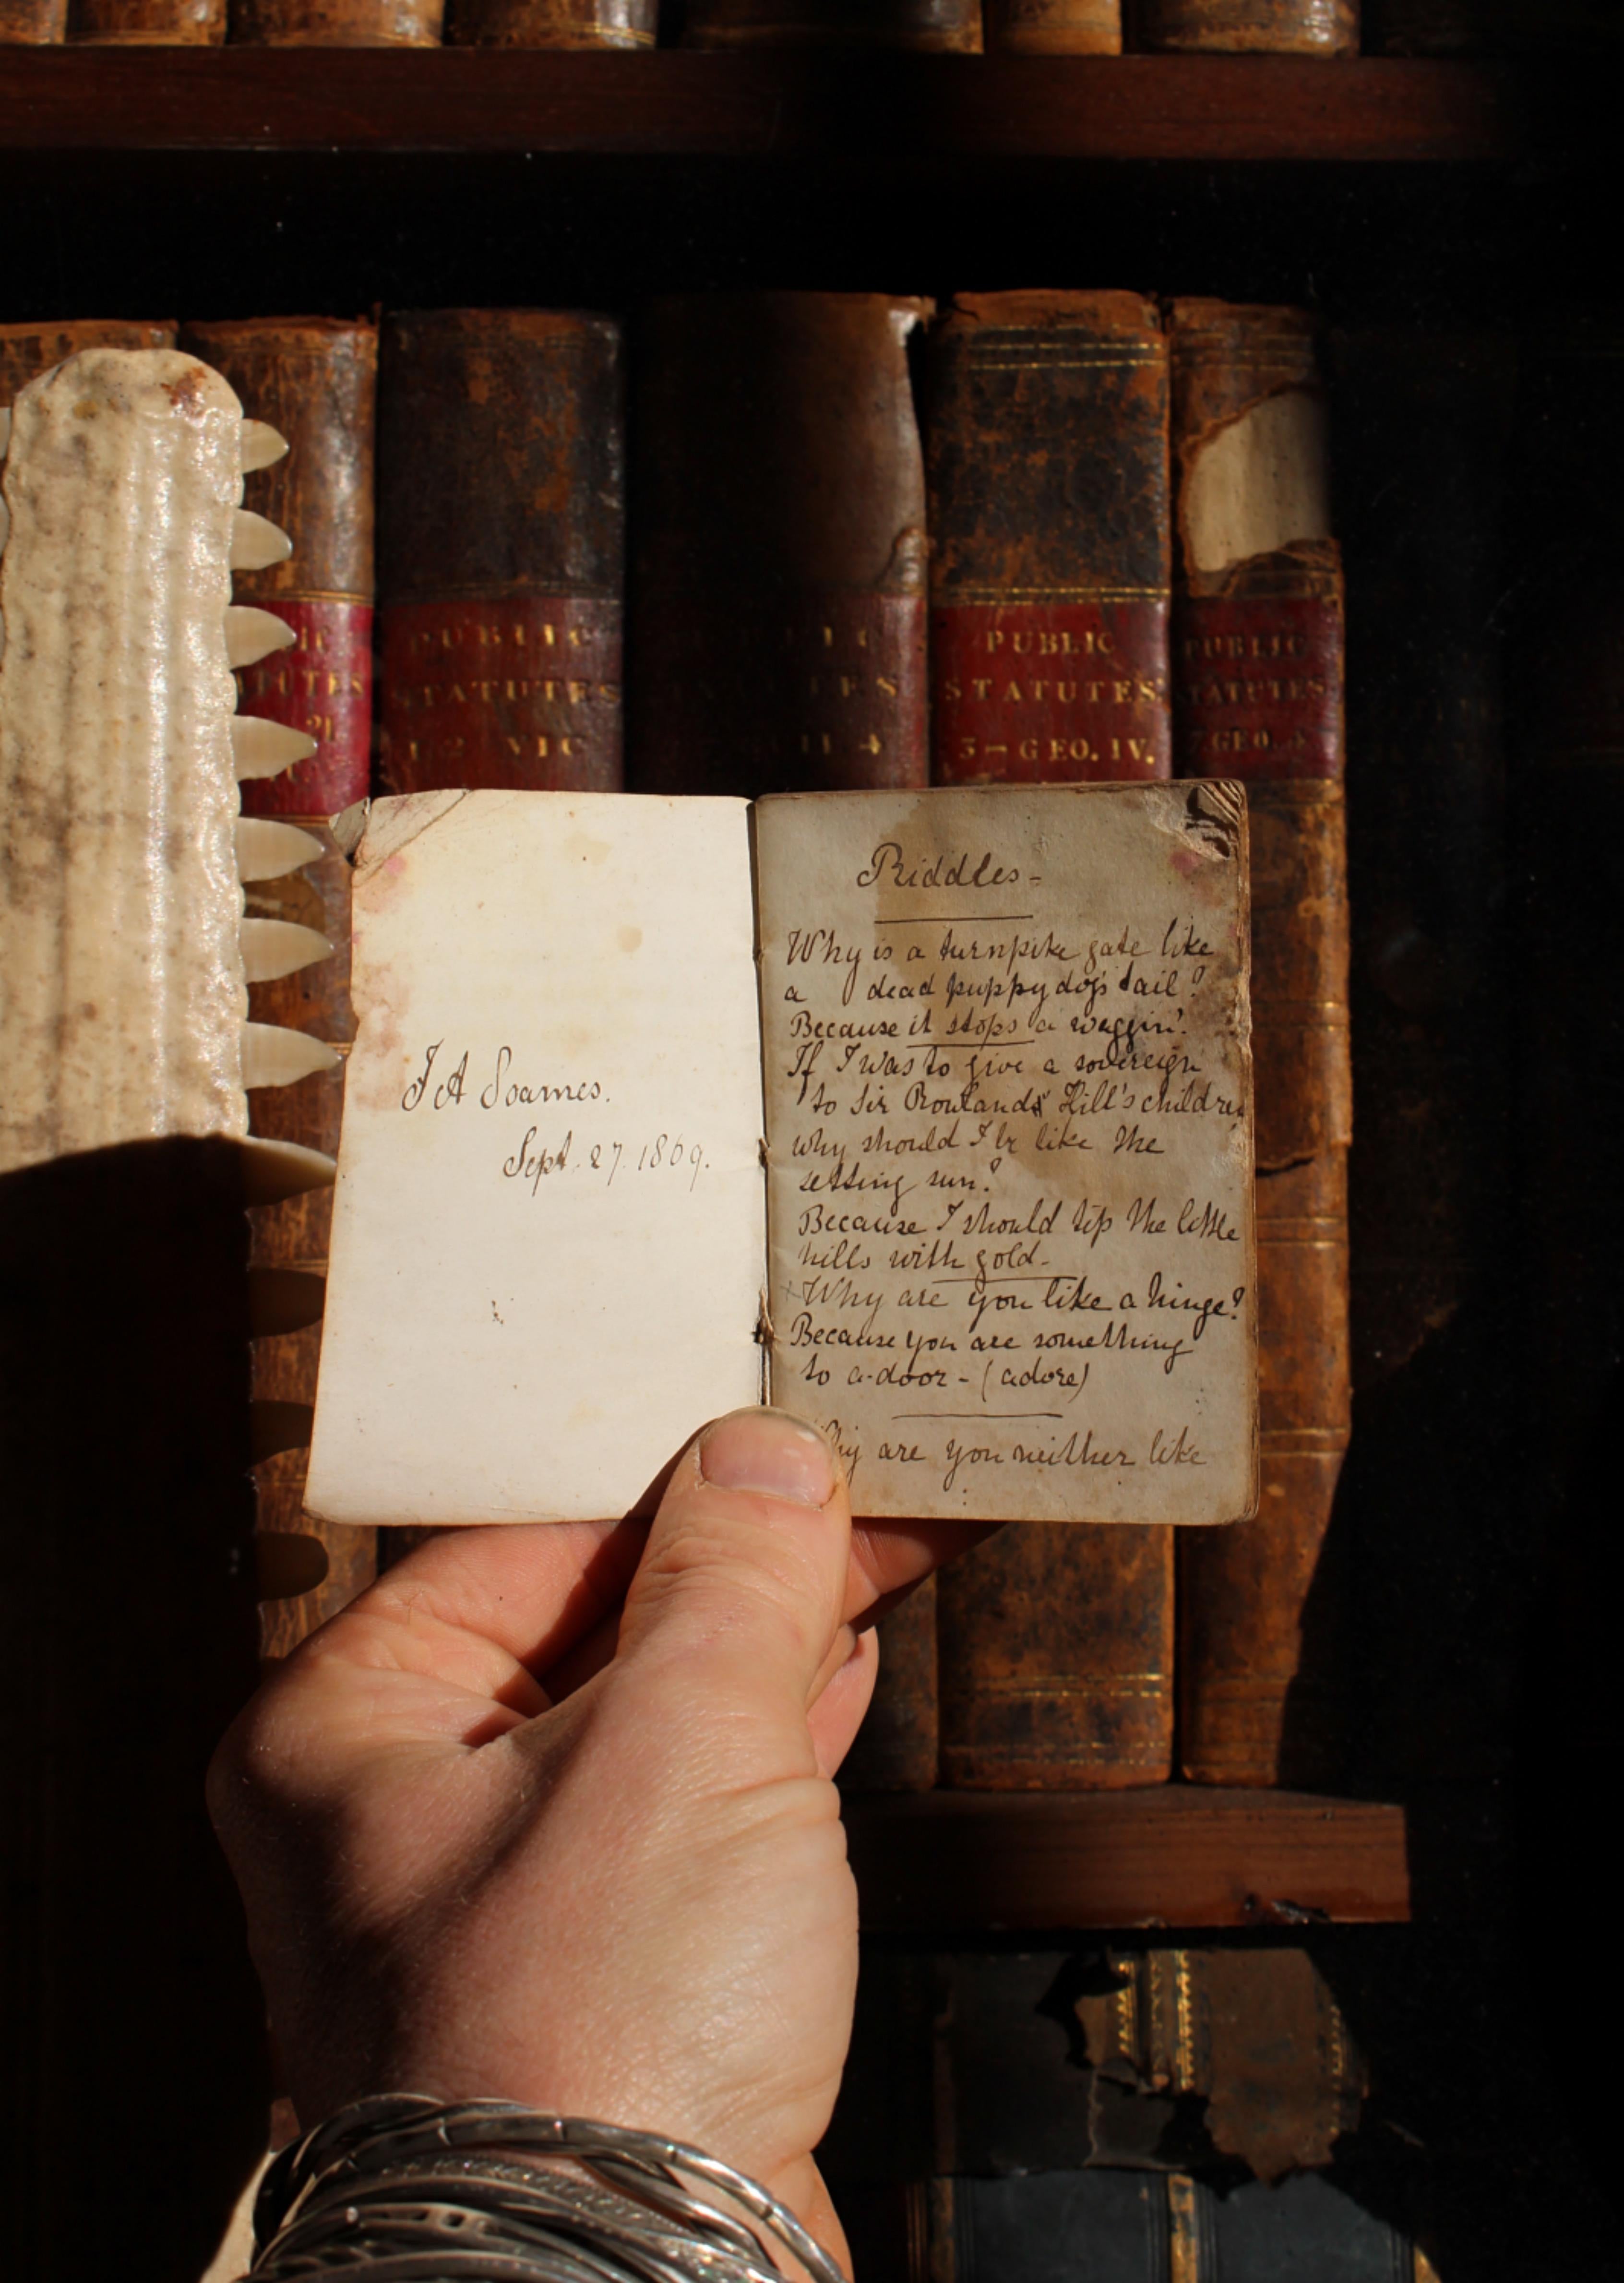 PUBLIC
STATUTES
1 & 2 VIC
PUBLIC
STATUTES
3 - GEO. IV.
PUBLIC
STATUTES
7 GEO. 4
J A Soames.
Sept. 27. 1869.
Riddles -
Why is a turnpike gate like
a dead puppy dog's tail?
Because it stops a waggin'.
If I was to give a sovereign
to Sir Rowlands Hill's children
why should I be like the
setting sun?
Because I should tip the little
hills with gold -
Why are you like a hinge?
Because you are something
to a-door - (adore)
Why are you neither like